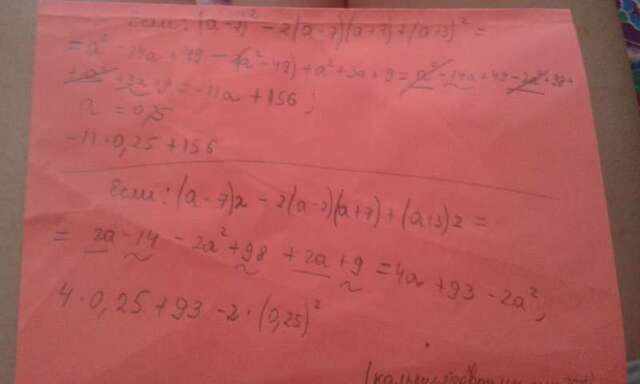 Если: (a-7)² - 2(a-7)(a+7)+(a+3)² =
= a² - 14a + 49 - 2(a²-49)+a²+3a+9= a² - 14a+49-2a²+98+
+ a² +3a+9 = -11a +156;
a =
-11·0,25+156
Если: (a-7)2 - 2(a-7)(a+7)+(a+3)2 =
= 2a-14 - 2a²+98 +2a+9 = 4a +93 - 2a²;
4·0,25+93 -2·(0,25)²